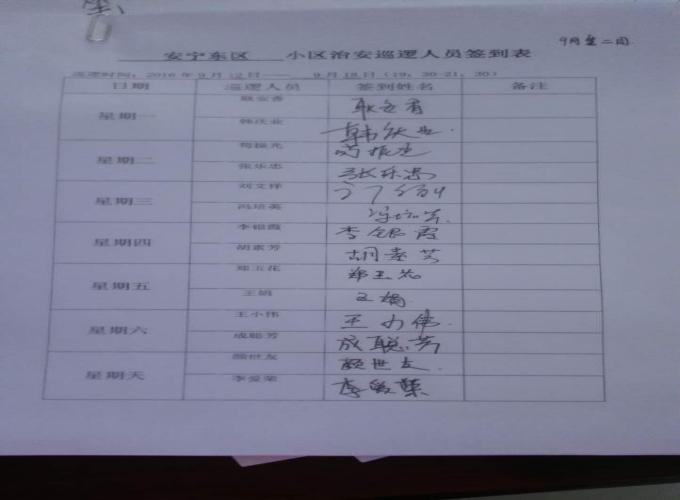 9月第二周
安宁东区 小区治安巡逻人员签到表
巡逻时间：2016年9月12日——9月18日（19：30-21：30）
日期 巡逻人员 签到姓名 备注
星期一
耿安香 耿安香
韩庆业 韩庆业
星期二
苟振光 苟振光
张乐忠 张乐忠
星期三
刘文祥
冯培英 冯培英
星期四
李银霞 李银霞
胡素芳 胡素芳
星期五
郑玉花 郑玉花
王娟 王娟
星期六
王小伟 王小伟
成聪芳 成聪芳
星期天
颜世友 颜世友
李爱荣 李爱荣